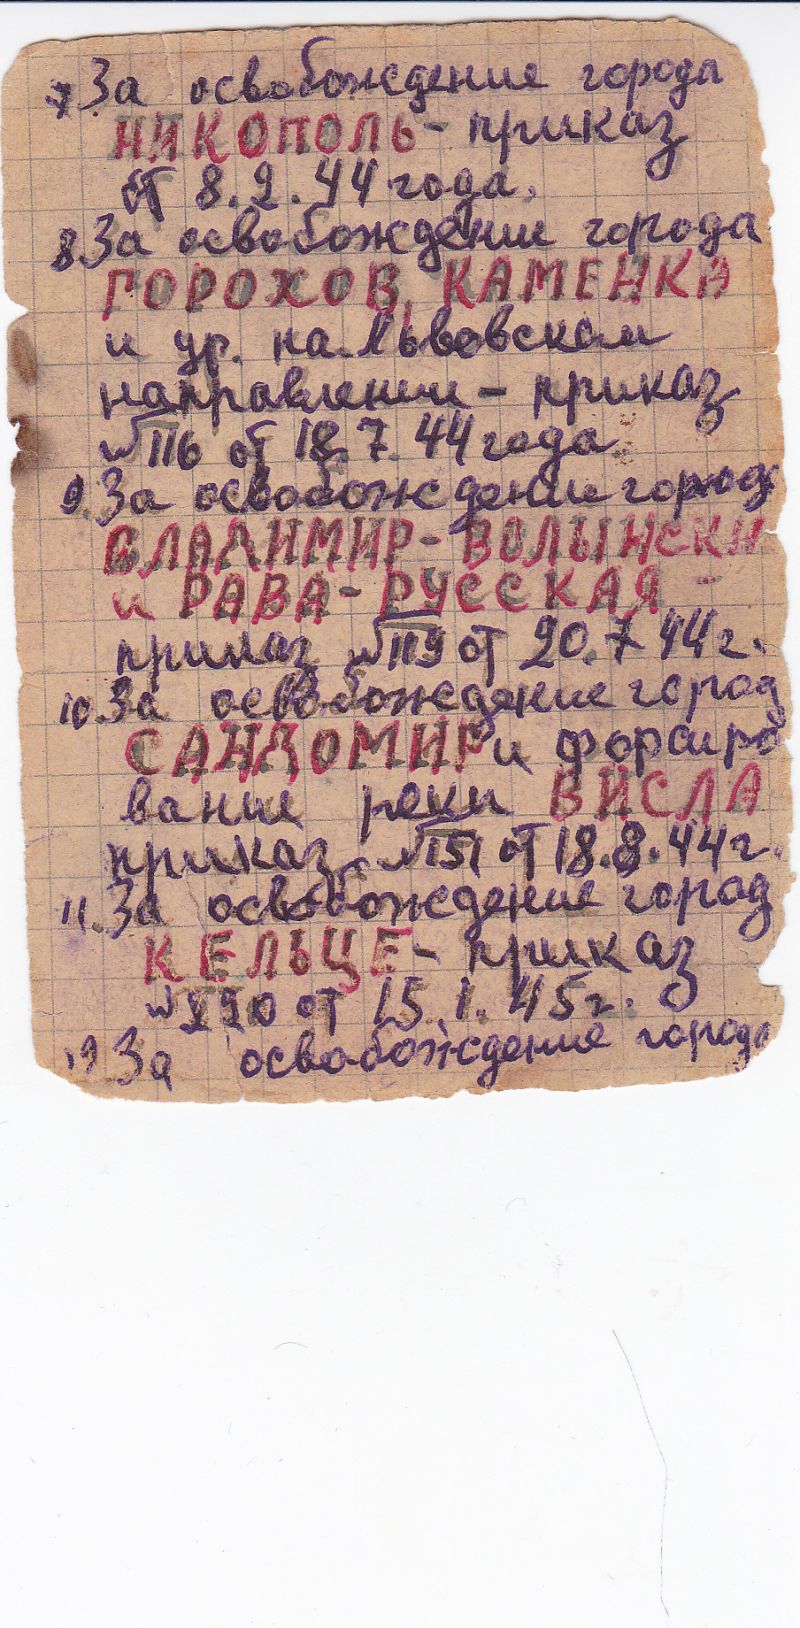 7 За освобождение города
НИКОПОЛЬ - приказ
от 8.2.44 года.
8. За освобождение города
ГОРОХОВ, КАМЕНКА
и др. на Львовском
направлении - приказ
№116 от 18.7.44 года
9. За освобождение города
ВЛАДИМИР-ВОЛЫНСКИ
и РАВА-РУССКАЯ -
приказ №119 от 20.7.44 г.
10. За освобождение город
САНДОМИР и форсиро
вание реки ВИСЛА
приказ №151 от 18.8.44 г.
11. За освобождение город
КЕЛЬЦЕ - приказ
№220 от 15.1.45 г.
12 За освобождение города